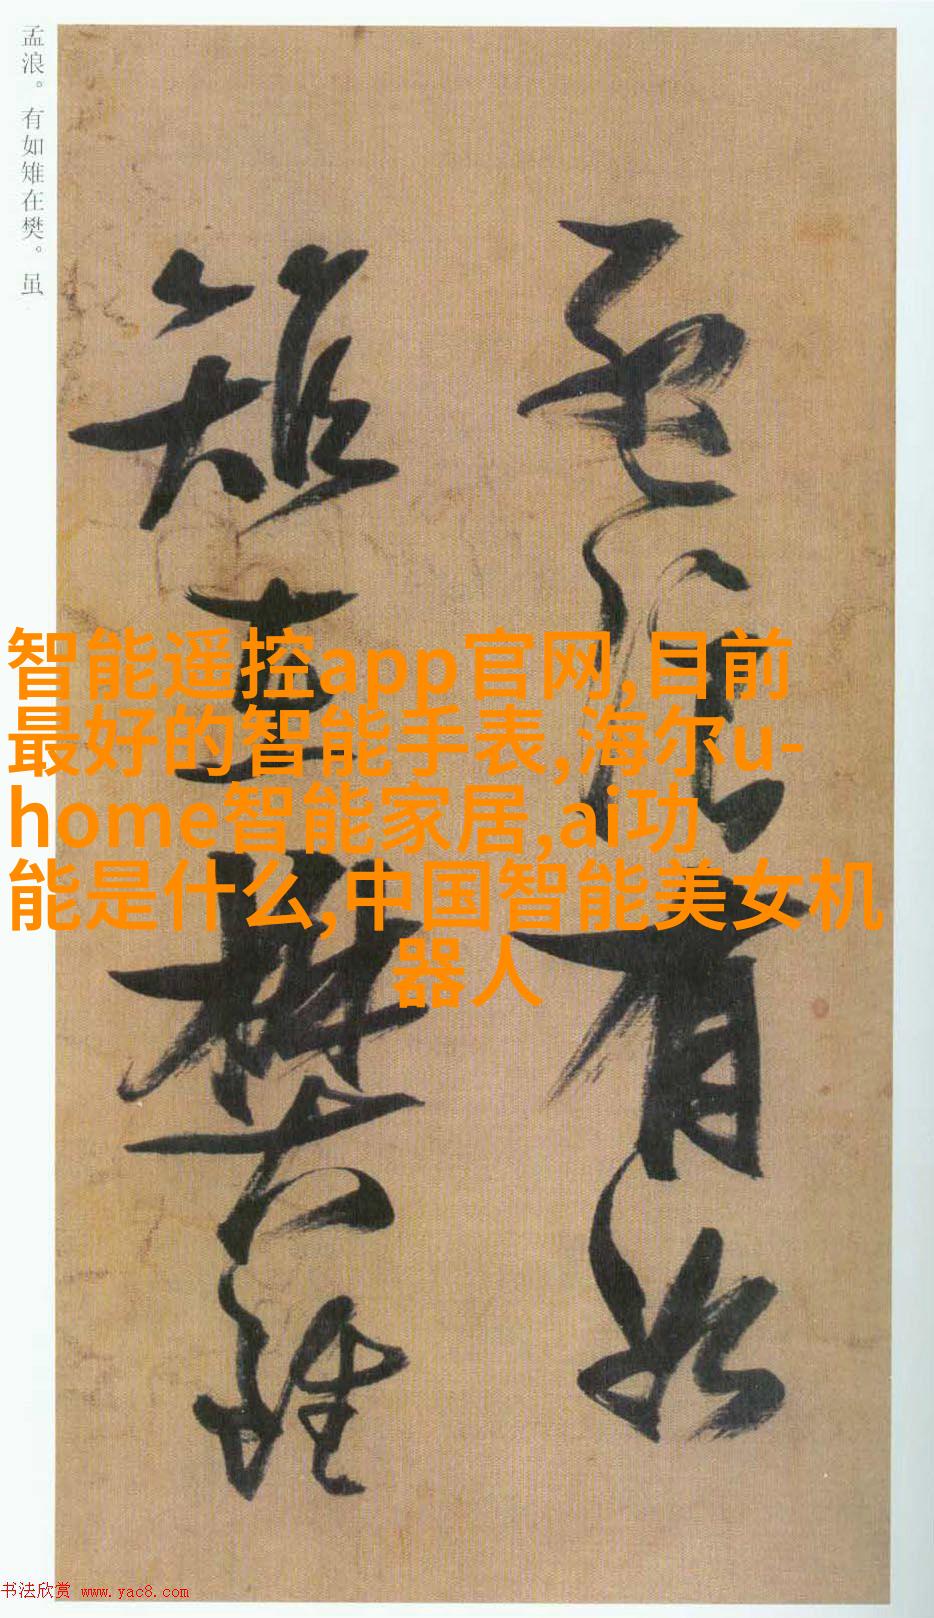 孟浪。有如雉在樊。虽
孟浪有如
雉在樊雖
智能遥控app官网,目前
最好的智能手表,海尔u-
home智能家居,ai功
能是什么,中国智能美女机
器人
书法欣赏 www.yac8.com